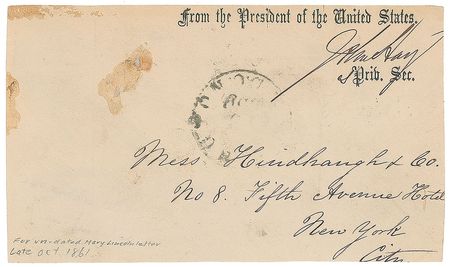 From the President of the United States.
John Hay
Priv. Sec.
Mess Hindhaugh & Co.
No 8. Fifth Avenue Hotel
New York
City
For un-dated Mary Lincoln letter
Late Oct 1861